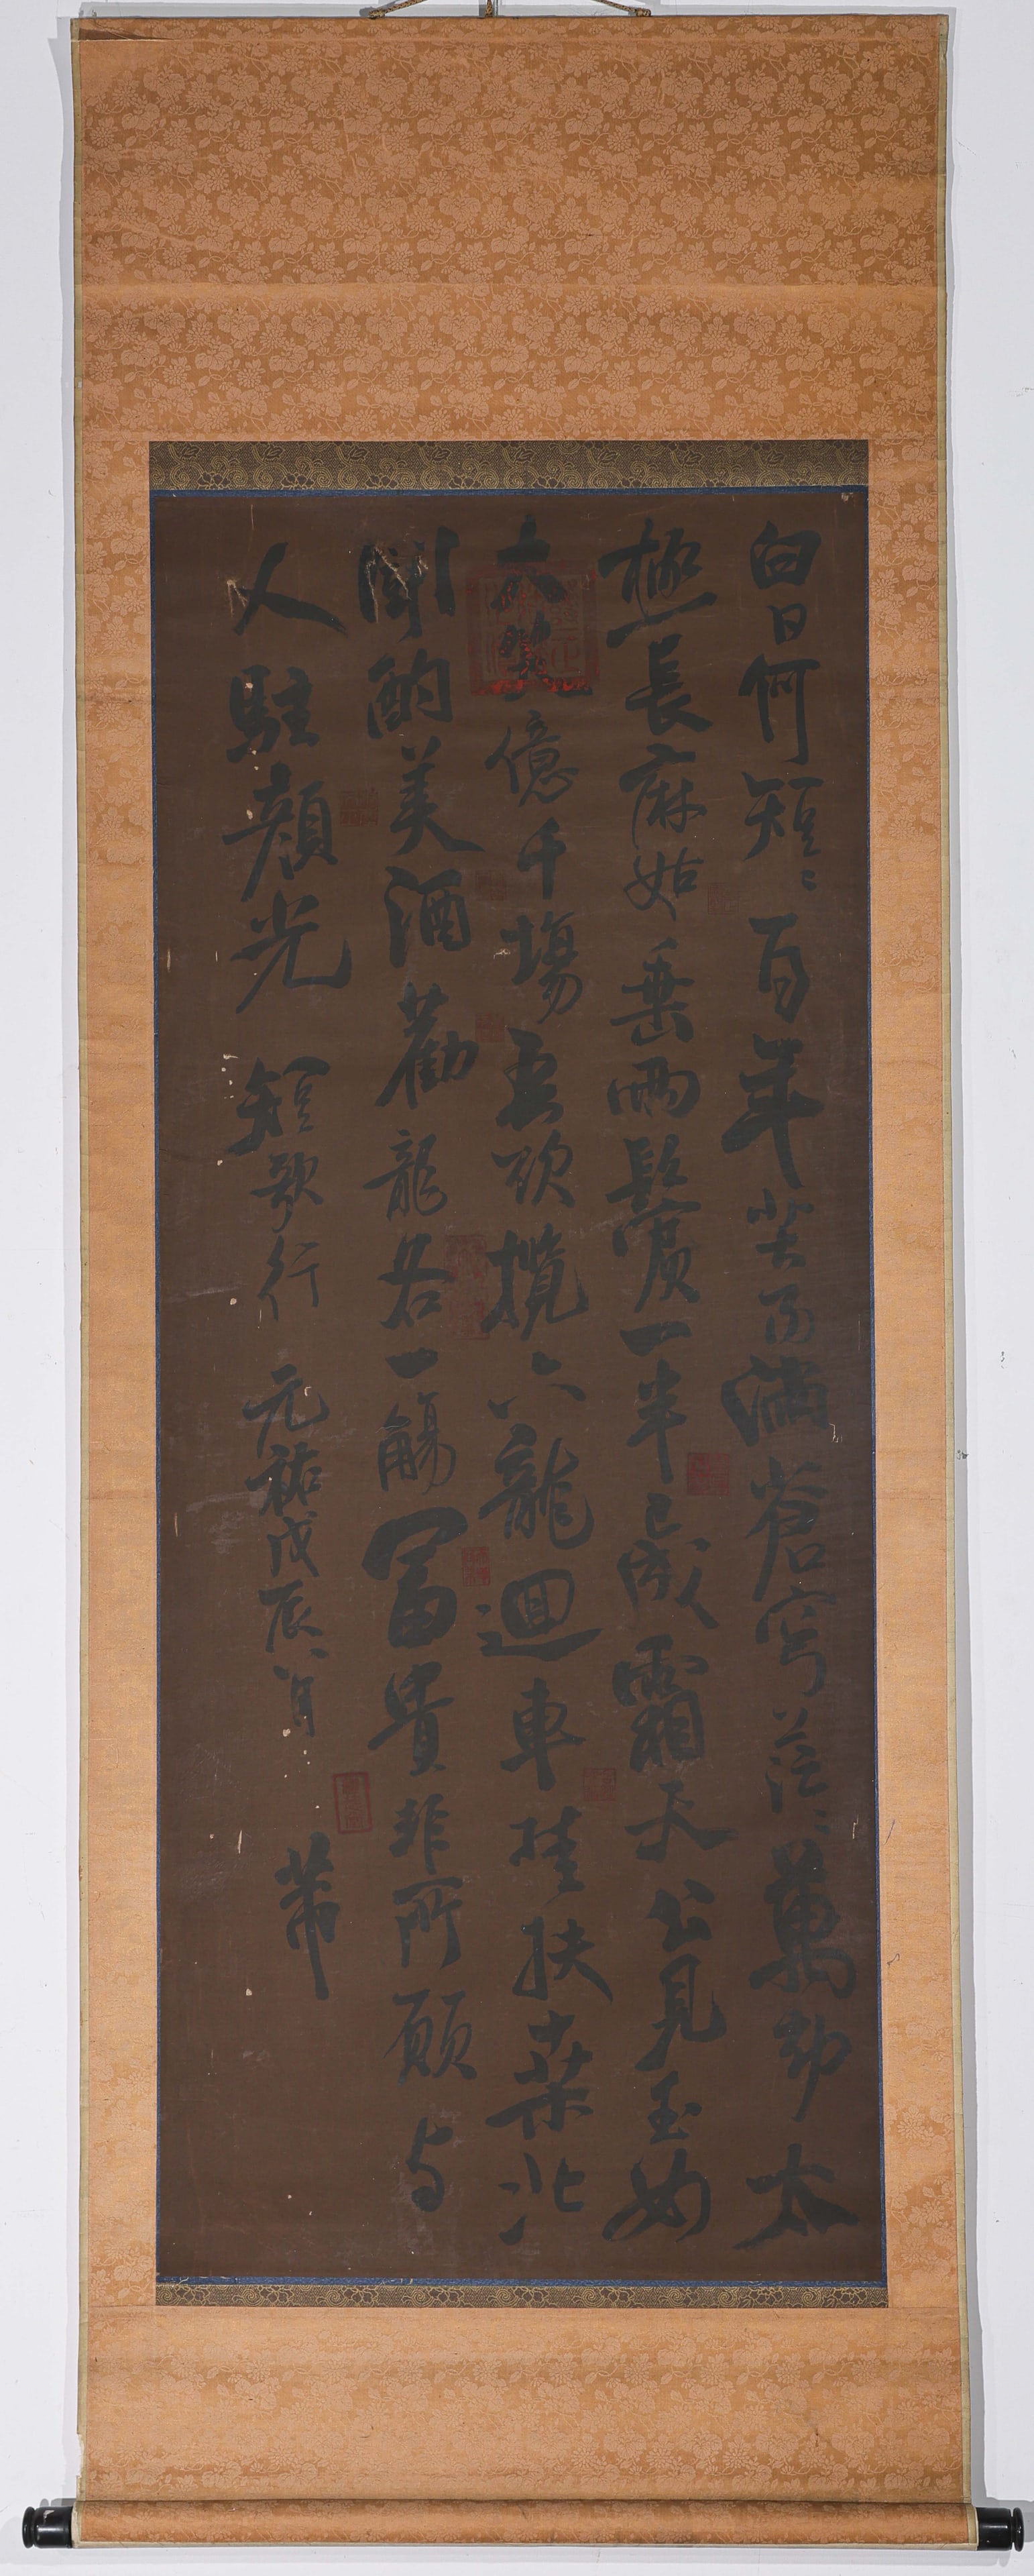 白日何短〻百年苦易滿蒼穹茫〻萬劫太
極長麻姑垂兩鬢一半已成霜天公見玉女
大笑億千場吾欲攬六龍迴車挂扶桑北
斗酌美酒勸龍各一觴冨貴非所願与
人駐顏光 短歌行 元祐戊辰八月 芾